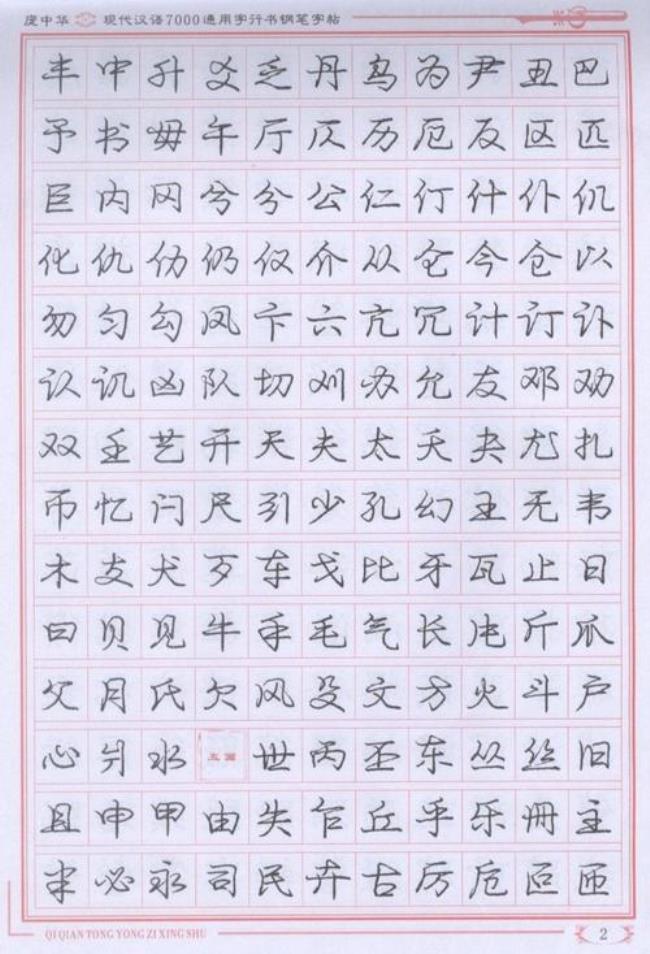 庞中华 现代汉语7000通用字行书钢笔字帖
丰中升爻乏丹乌为尹丑巴
予书毋午厅仄历厄反区匹
巨内冈兮分公仁仃什仆仉
化仇仂仍仅介从仑今仓以
勿匀勾凤卞六亢冗计订讣
认讥凶队切刈办允友邓劝
双壬艺开天夫太夭夬尤扎
币忆闩尺引少孔幻王无韦
木支犬歹车戈比牙瓦止日
曰贝见牛手毛气长片斤爪
父月氏欠风殳文方火斗户
心爿水 五画 世丙丕东丛丝旧
且申甲由失乍丘乎乐册主
半必永司民卉古厉卮叵匝
QI QIAN TONG YONG ZI XING SHU
2